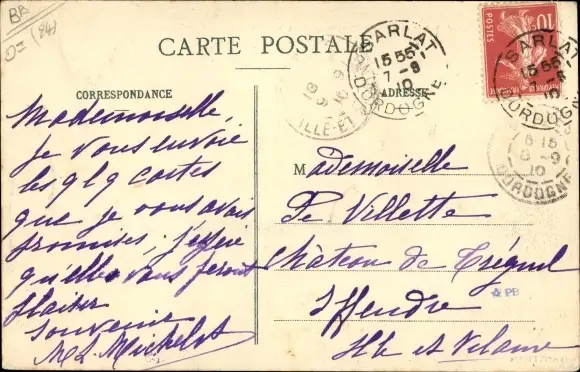 BB
(24)
CARTE POSTALE
CORRESPONDANCE
ADRESSE
Mademoiselle,
je vous envoie
les qlq cartes
que je vous avais
promises, j'espère
qu'elles vous feront
plaisir
Souvenir
M L Michelet
Mademoiselle
De Villette
Château de Tréguel
Iffendic
Ille et Vilaine
SARLAT
15 55
7 - 9
10
DORDOGNE
SARLAT
15 55
7 - 9
10
DORDOGNE
15
8 - 9
10
DORDOGNE
18
9
10
ILLE-ET-
POSTES
10
PB